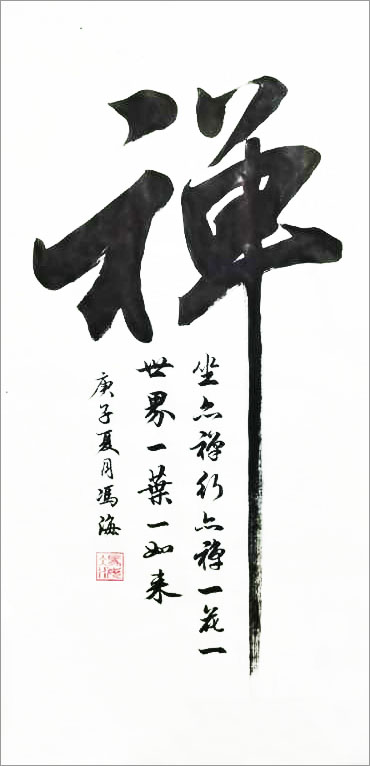 禅
坐亦禅行亦禅一花一
世界一葉一如来
庚子夏月馮海